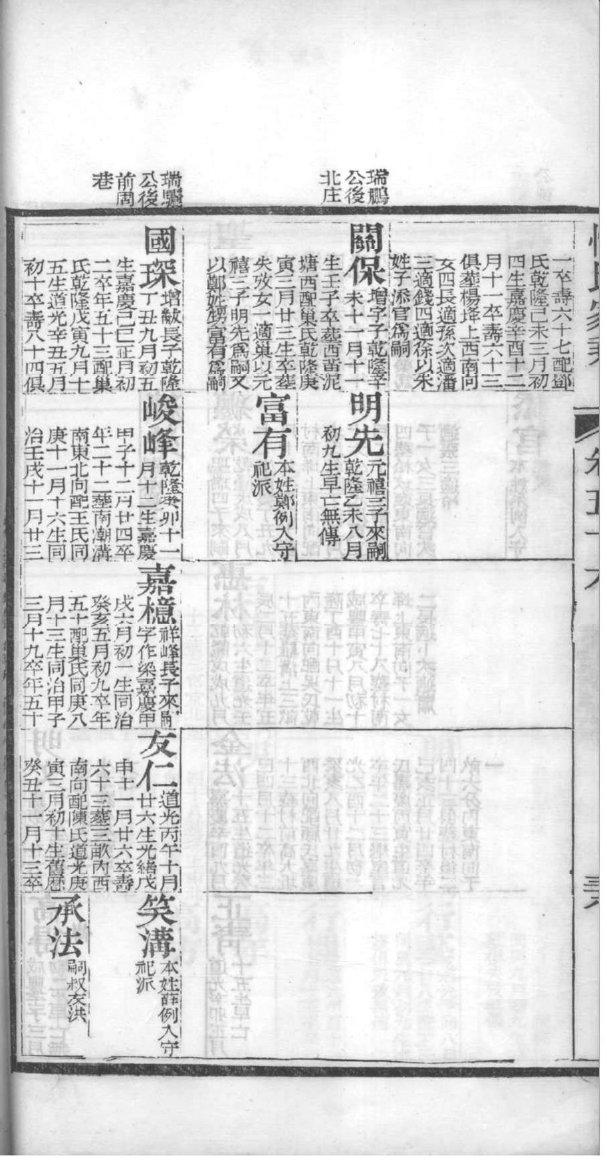 瑞鵬
公後
北庄
瑞鵬
公後
前周
巷
一卒壽六十七配鄧
氏乾隆己未三月初
四生嘉慶辛酉十二
月十一卒壽六十三
俱葬楊垾上西南向
女四長適孫次適潘
三適錢四適徐以朱
姓子添官爲嗣
關保
增字子乾隆辛
未十一月十一
生壬子卒葬西畓泥
塘西配巢氏乾隆庚
寅三月廿三生卒葬
失攷女一適巢以元
禧三子明先爲嗣又
以鄭姓甥富有爲嗣
明先
元禧三子來嗣
乾隆乙未八月
初九生早亡無傳
富有
本姓鄭例入守
祀派
國琛
增猷長子乾隆
丁丑九月初五
生嘉慶己巳正月初
二卒年五十三配巢
氏乾隆戊寅九月十
五生道光辛丑五月
初十卒壽八十四俱
峻峰
乾隆癸卯十一
月十二生嘉慶
甲子十二月廿四卒
年二十二葬南潮溝
南東北向配王氏同
庚十一月十六生同
治壬戌十一月廿三
嘉檍
祥峰長子來嗣
字作梁嘉慶甲
戌六月初一生同治
癸亥五月初九卒年
五十配巢氏同庚八
月十三生同治甲子
三月十九卒年五十
友仁
道光丙午十月
廿六生光緒戊
申十一月廿六卒壽
六十三葬三畝內西
南向配陳氏道光庚
寅三月初十生舊曆
癸丑十一月十三卒
笑溝
本姓薛例入守
祀派
承法
嗣叔友洪
卷五十六